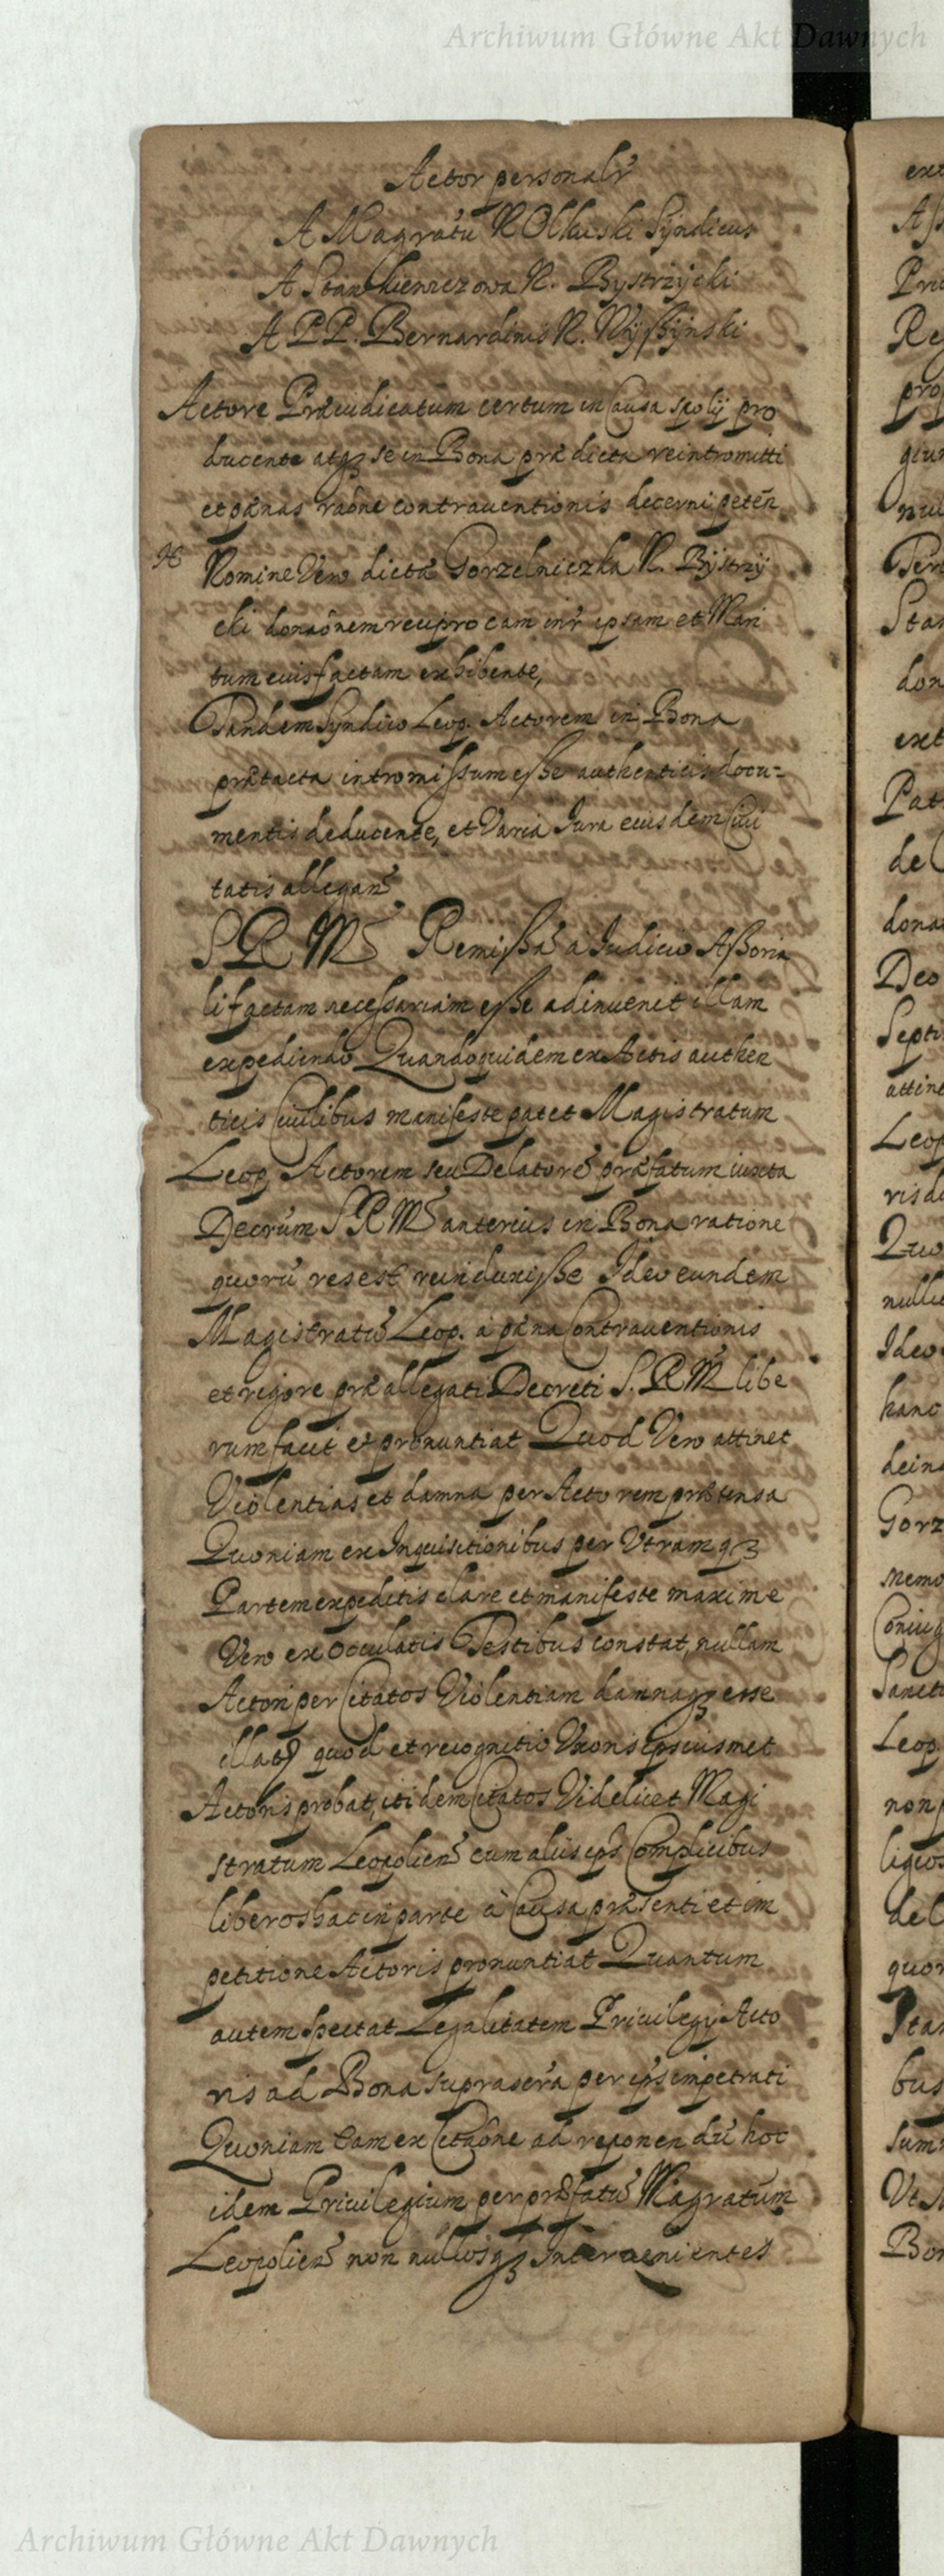 Archiwum Główne Akt Dawnych
Actor personalr
A Magratu N Olkuski Syndicus
A Stankiewiczowa N. Bystrzycki
A PP. Bernardinis N. Wyszynski
Actore Præiudicatum certum in Causa spolij pro
ducente atq3 se in Bona prædicta reintromitti
et pænas raone contrauentionis decerni peten
Nomine Vero dictæ Gorzelniczka N. Bystrzy
cki donaonem reciprocam intr ipsam et Mari
tum eius factam exhibente,
Tandem Syndico Leop. Actorem in Bona
prætacta intromissum esse authenticis docu-
mentis deducente, et Varia Jura eiusdem Ciui
tatis allegan
S R M Remissa a Iudicio Assoria
li factam necessariam esse adinuenit illam
expediendo Quandoquidem ex Actis authen
ticis Ciuilibus manifeste patet Magistratum
Leop. Actorem seu Delatore præfatum iuxta
Decrum S R M anterius in Bona ratione
quoru res est reinduxisse Ideo eundem
Magistratu Leop. a pæna Contrauentionis
et rigore præallegati Decreti S. R M libe
rum facit et pronuntiat Quod Vero attinet
Violentias et damna per Actorem prætensa
Quoniam ex Inquisitionibus per Utramq3
Partem expeditis clare et manifeste maxime
Vero ex oculatis Testibus constat, nullam
Actori per Citatos Violentiam damnaq3 esse
illata quod et recognitio Uxoris ipsiusmet
Actoris probat, itidem Citatos Videlicet Magi
stratum Leopolien cum aliis eps Complicibus
liberos hac in parte à Causa præsenti et im
petitione Actoris pronuntiat Quantum
autem spectat Legalitatem Priuilegij Acto
ris ad Bona suprascra per ips impetrati
Quoniam tam ex Citaone ad reponendu hoc
idem Priuilegium per præfatu Magratum
Leopolien non nullosq3 Interuenientes
Archiwum Główne Akt Dawnych